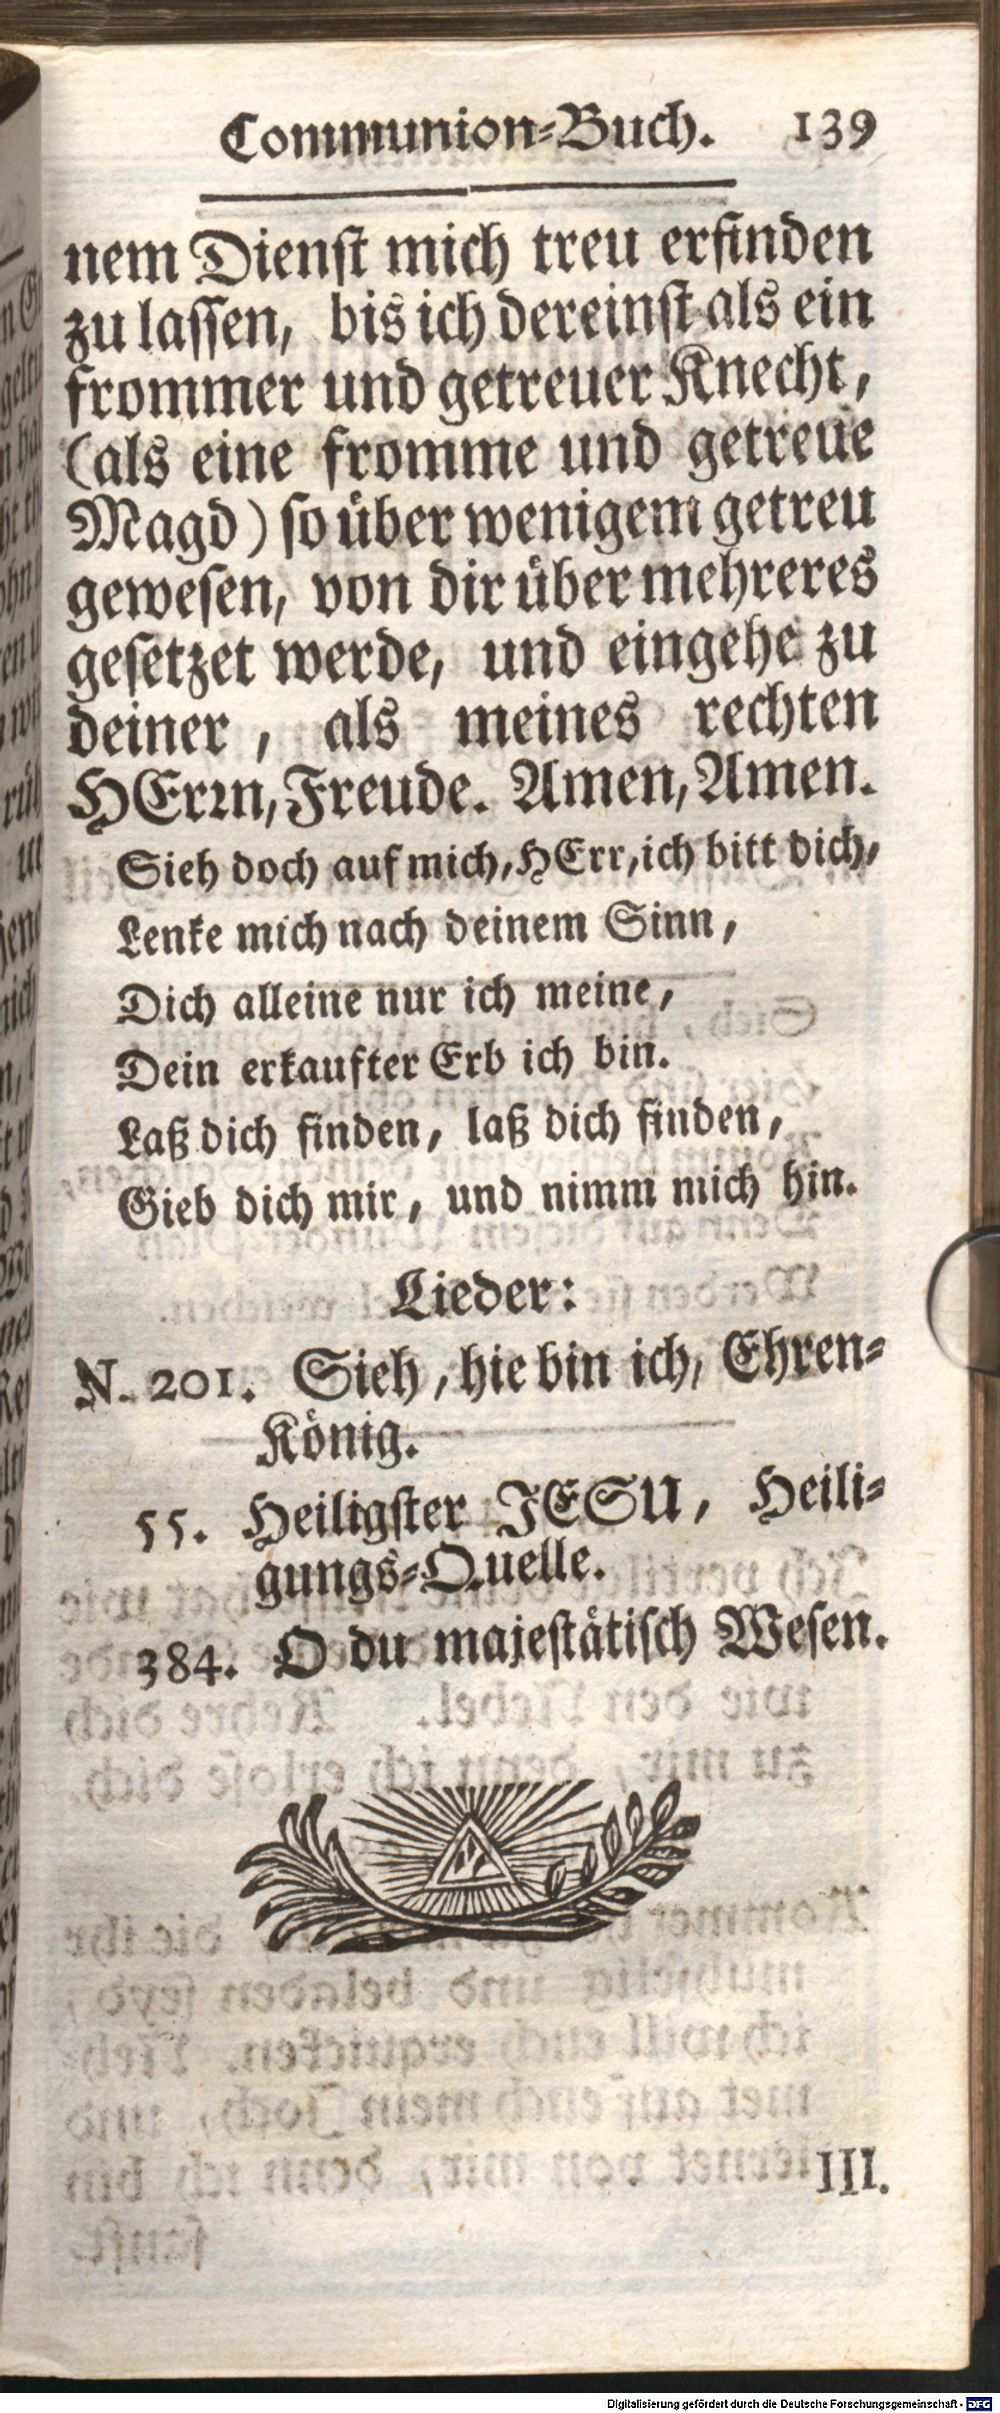 Communion-Buch. 139
nem Dienſt mich treu erfinden
zu laſſen, bis ich dereinſt als ein
frommer und getreuer Knecht,
(als eine fromme und getreue
Magd) ſo über wenigem getreu
geweſen, von dir über mehreres
geſetzet werde, und eingehe zu
deiner, als meines rechten
HErꝛn, Freude. Amen, Amen.
Sieh doch auf mich, HErr, ich bitt dich,
Lenke mich nach deinem Sinn,
Dich alleine nur ich meine,
Dein erkaufter Erb ich bin.
Laß dich finden, laß dich finden,
Gieb dich mir, und nimm mich hin.
Lieder:
N. 201. Sieh, hie bin ich, Ehren-
König.
55. Heiligſter JESU, Heili-
gungs-Quelle.
384. O du majeſtätiſch Weſen.
III.
Digitalisierung gefördert durch die Deutsche Forschungsgemeinschaft - DFG